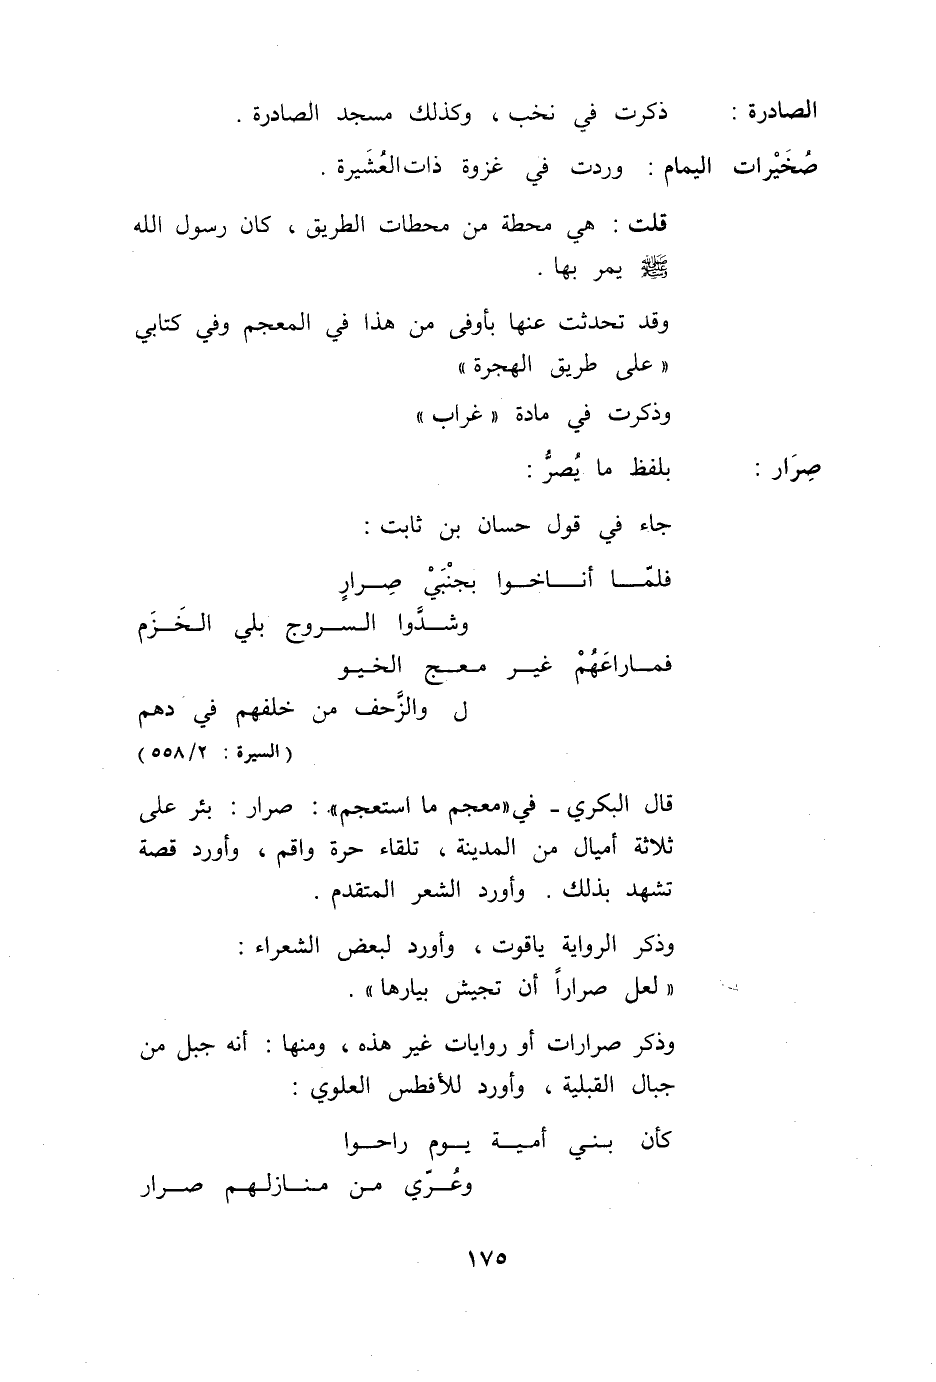 الصادرة : ذكرت في نخب ، وكذلك مسجد الصادرة .
صُخَيْرات اليمام : وردت في غزوة ذات العُشَيرة .
قلت : هي محطة من محطات الطريق ، كان رسول الله
ﷺ يمر بها .
وقد تحدثت عنها بأوفى من هذا في المعجم وفي كتابي
« على طريق الهجرة »
وذكرت في مادة « غراب »
صِرَار : بلفظ ما يُصرُّ :
جاء في قول حسان بن ثابت :
فلمّـــا أنـــاخـــوا بجنْبَيْ صِـــرارٍ
وشـــدَّوا الســـروج بلي الخَـــزَم
فمـــاراعَهُمْ غيـــر معـــج الخيـــو
ل والزَّحف من خلفهم في دهم
(السيرة : ٥٥٨/٢)
قال البكري - في «معجم ما استعجم» : صرار : بئر على
ثلاثة أميال من المدينة ، تلقاء حرة واقم ، وأورد قصة
تشهد بذلك . وأورد الشعر المتقدم .
وذكر الرواية ياقوت ، وأورد لبعض الشعراء :
« لعل صراراً أن تجيش بيارها» .
وذكر صرارات أو روايات غير هذه ، ومنها : أنه جبل من
جبال القبلية ، وأورد للأفطس العلوي :
كأن بـــني أميـــة يـــوم راحـــوا
وعُـــرّي مـــن منـــازلهـــم صـــرار
١٧٥